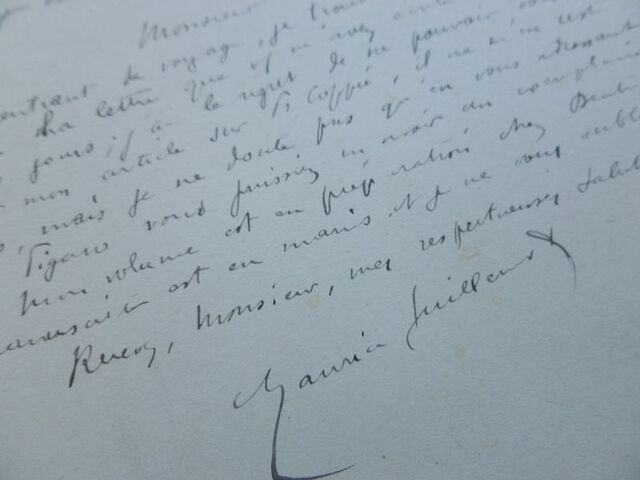 Monsieur
rentrant de voyage, je trouve
la lettre que vous m'avez
jours; j'ai le regret de ne pouvoir vous
mon article sur Fr Coppée, il ne m'en reste
, mais je ne doute pas qu'en vous adressant
Figaro vous puissiez en avoir un exemplaire
Mon volume est en préparation chez Dentu
manuscrit est en mains et je ne vous oublie
Recevez, Monsieur, mes respectueuses salut
Maurice Guillemot